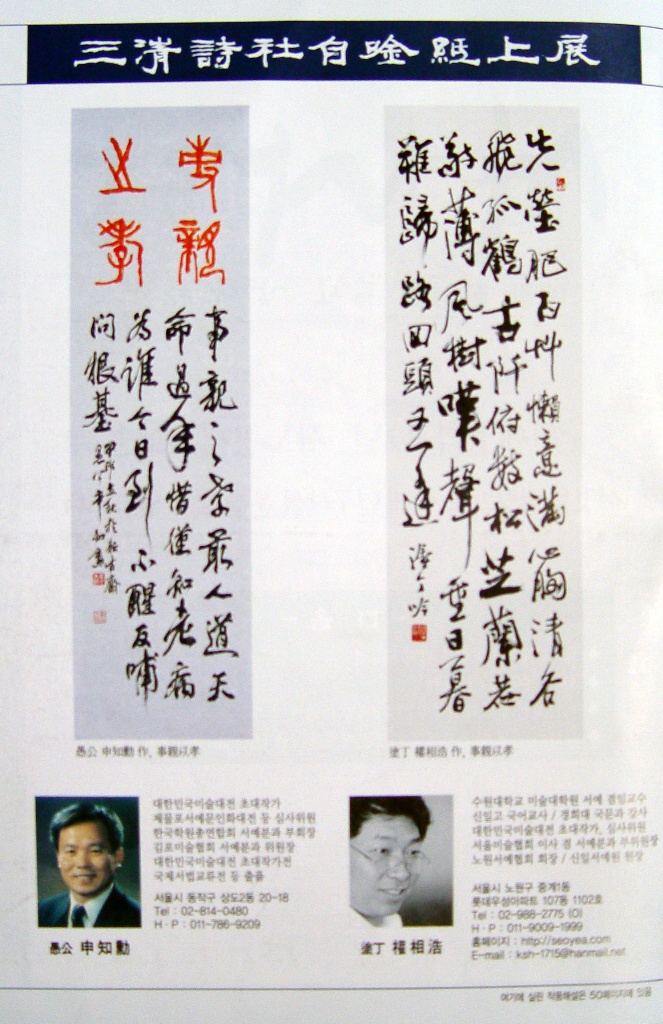 三淸詩社自唫紙上展
事親
以孝
事親之孝最人道天
命過年惜僅知老病
為誰今日到不醒反哺
問根基
先塋肥百艸懶意滿心胸淸谷
飛孤鶴古阡俯數松芝蘭若
薄風樹嘆聲重日暮
難歸路回頭又一逢
愚公 申知勳 作, 事親以孝
塗丁 權相浩 作, 事親以孝
대한민국미술대전 초대작가
제물포서예문인화대전 등 심사위원
한국학원총연합회 서예분과 부회장
김포미술협회 서예분과 위원장
대한민국미술대전 초대작가전
국제서법교류전 등 출품
서울시 동작구 상도2동 20-18
Tel : 02-814-0480
H·P : 011-786-9209
愚公 申知勳
수원대학교 미술대학원 서예 겸임교수
신일고 국어교사 / 경희대 국문과 강사
대한민국미술대전 초대작가, 심사위원
서울미술협회 이사 겸 서예분과 부위원장
노원서예협회 회장 / 신일서예원 원장
서울시 노원구 중계1동
롯데우성아파트 107동 1102호
Tel : 02-988-2775 (O)
H·P : 011-9009-1999
홈페이지 : http://seoyea.com
E-mail : ksh-1715@hanmail.net
塗丁 權相浩
여기에 실린 작품해설은 50페이지에 있음